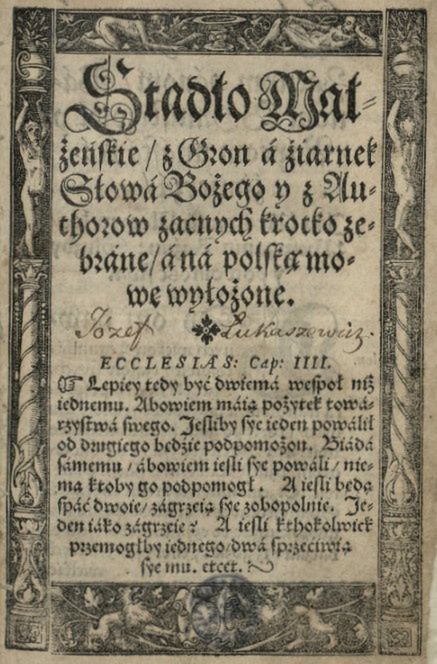 Stadło Mał-
żeńskie / z Gron á źiarnek
Słowá Bożego y z Au-
thorow zacnych krotko ze-
bráne / á ná polską mo-
wę wyłożone.
Józef Łukaszewicz.
ECCLESIAS: Cap: IIII.
☞ Lepiey tedy być dwiemá wespoł niż
iednemu. Abowiem máią pożytek towá-
rzystwá swego. Jesliby sye ieden powálił
od drugiego będzie podpomożon. Biádá
sámemu / ábowiem iesli sye powáli / nie-
ma ktoby go podpomogł. A iesli będą
spáć dwoie / zágrzeią sye zobopolnie. Je-
den iáko zágrzeie? A iesli kthokolwiek
przemogłby iednego / dwá sprzećiwią
sye mu. etcet.